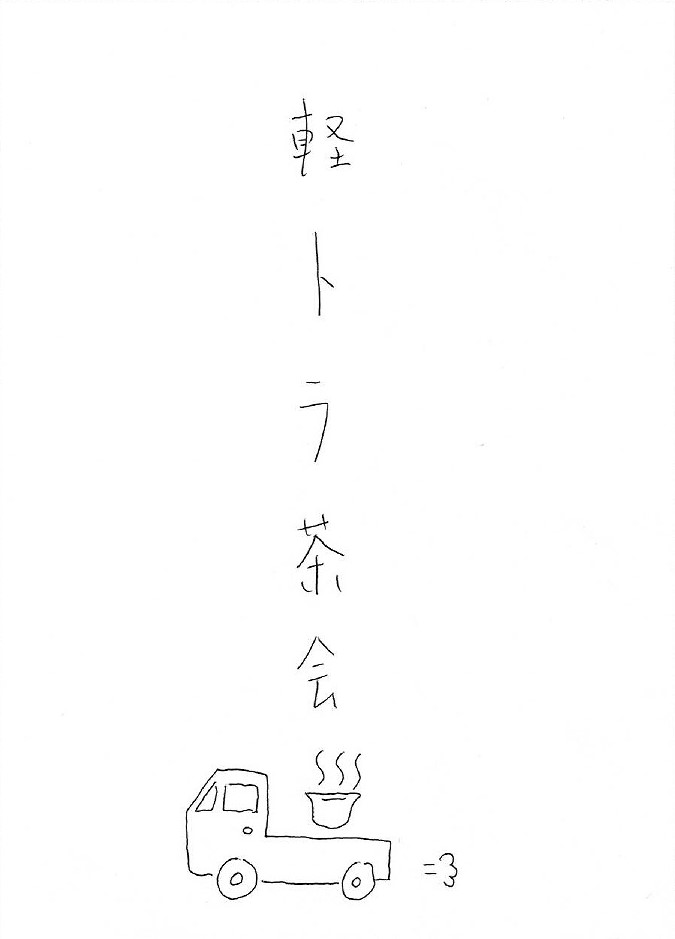 軽トラ茶会